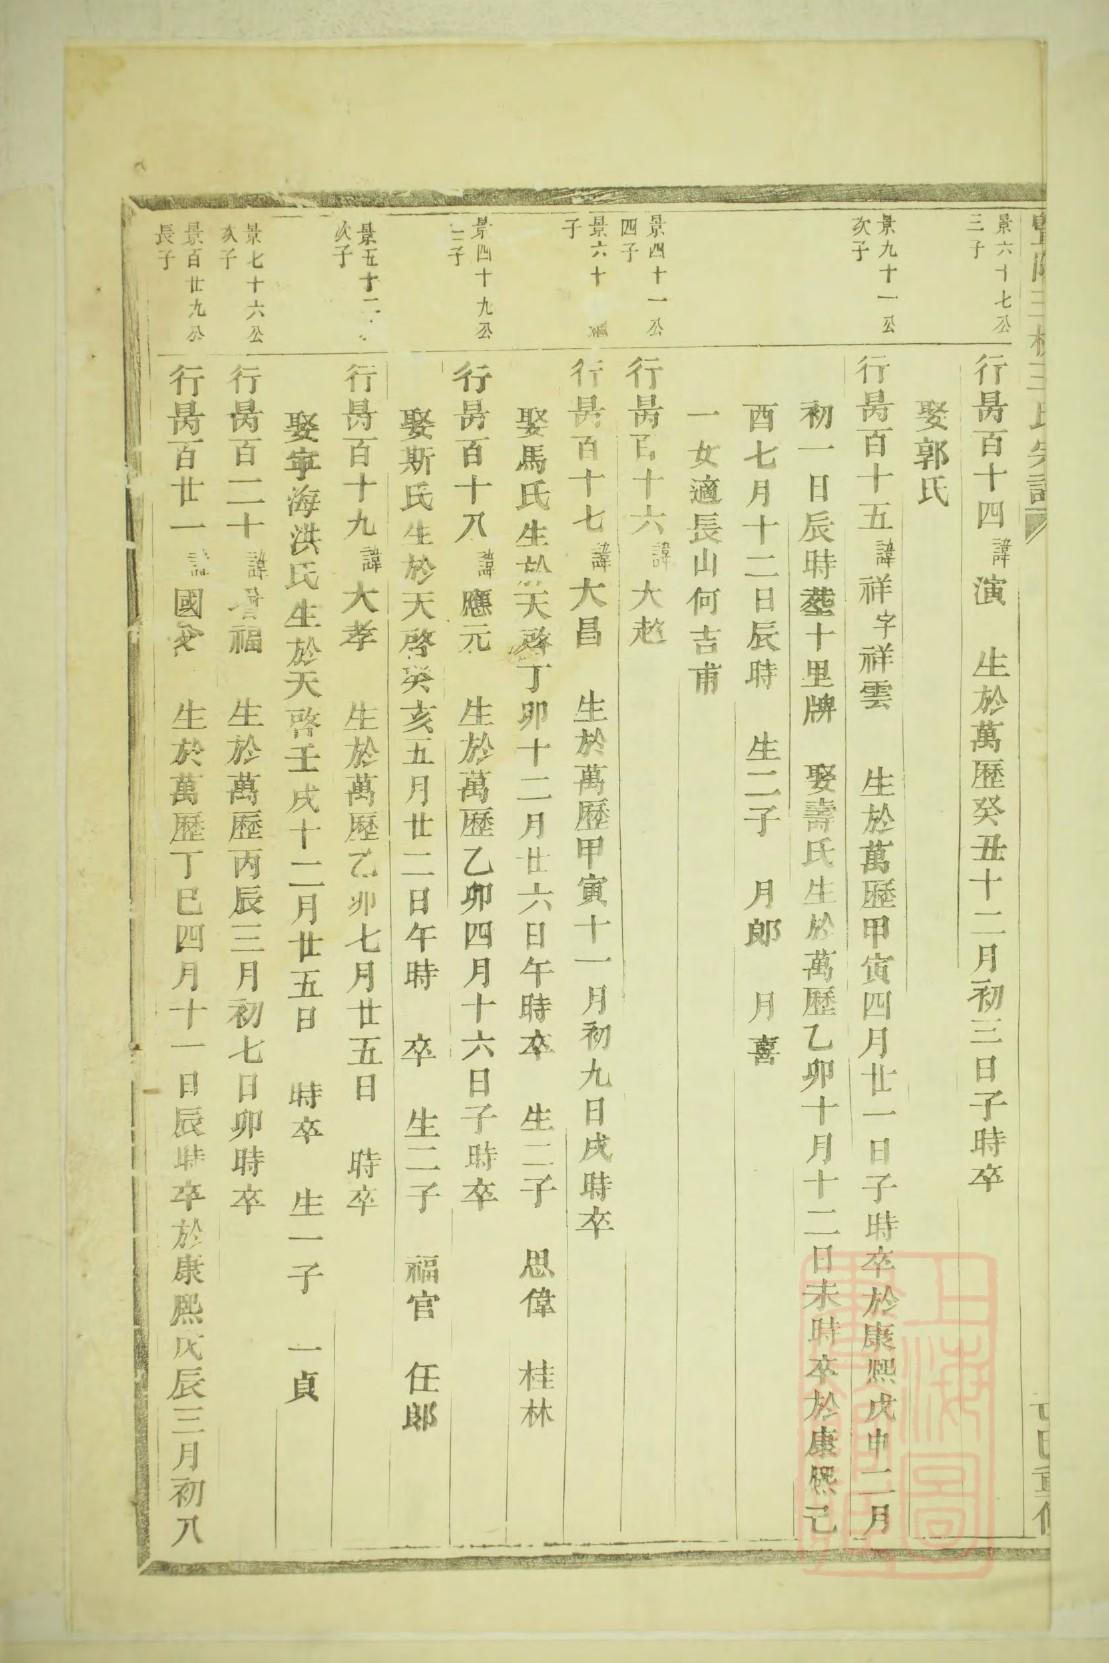 景六十七公
三子
行昺百十四諱演 生於萬歷癸丑十二月初三日子時卒
娶郭氏
景九十一公
次子
行昺百十五諱祥字祥雲 生於萬歷甲寅四月廿一日子時卒於康熙戊申二月
初一日辰時塟十里牌 娶壽氏生於萬歷乙卯十月十二日未時卒於康熙己
酉七月十二日辰時 生二子 月郎 月喜
一女適長山何吉甫
景四十一公
四子
行昺百十六諱大趂
景六十
子
行昺百十七諱大昌 生於萬歷甲寅十一月初九日戌時卒
娶馬氏生於天啓丁卯十二月廿六日午時卒 生二子 思偉 桂林
景四十九公
三子
行昺百十八諱應元 生於萬歷乙卯四月十六日子時卒
娶斯氏生於天啓癸亥五月廿二日午時 卒 生二子 福官 任郎
景五十二
次子
行昺百十九諱大孝 生於萬歷乙卯七月廿五日 時卒
娶寧海洪氏生於天啓壬戌十二月廿五日 時卒 生一子 一貞
景七十六公
次子
行昺百二十諱福 生於萬歷丙辰三月初七日卯時卒
景百廿九公
長子
行昺百廿一諱國 生於萬歷丁巳四月十一日辰時卒於康熙戊辰三月初八
暨陽 王氏宗譜
重修
上海圖